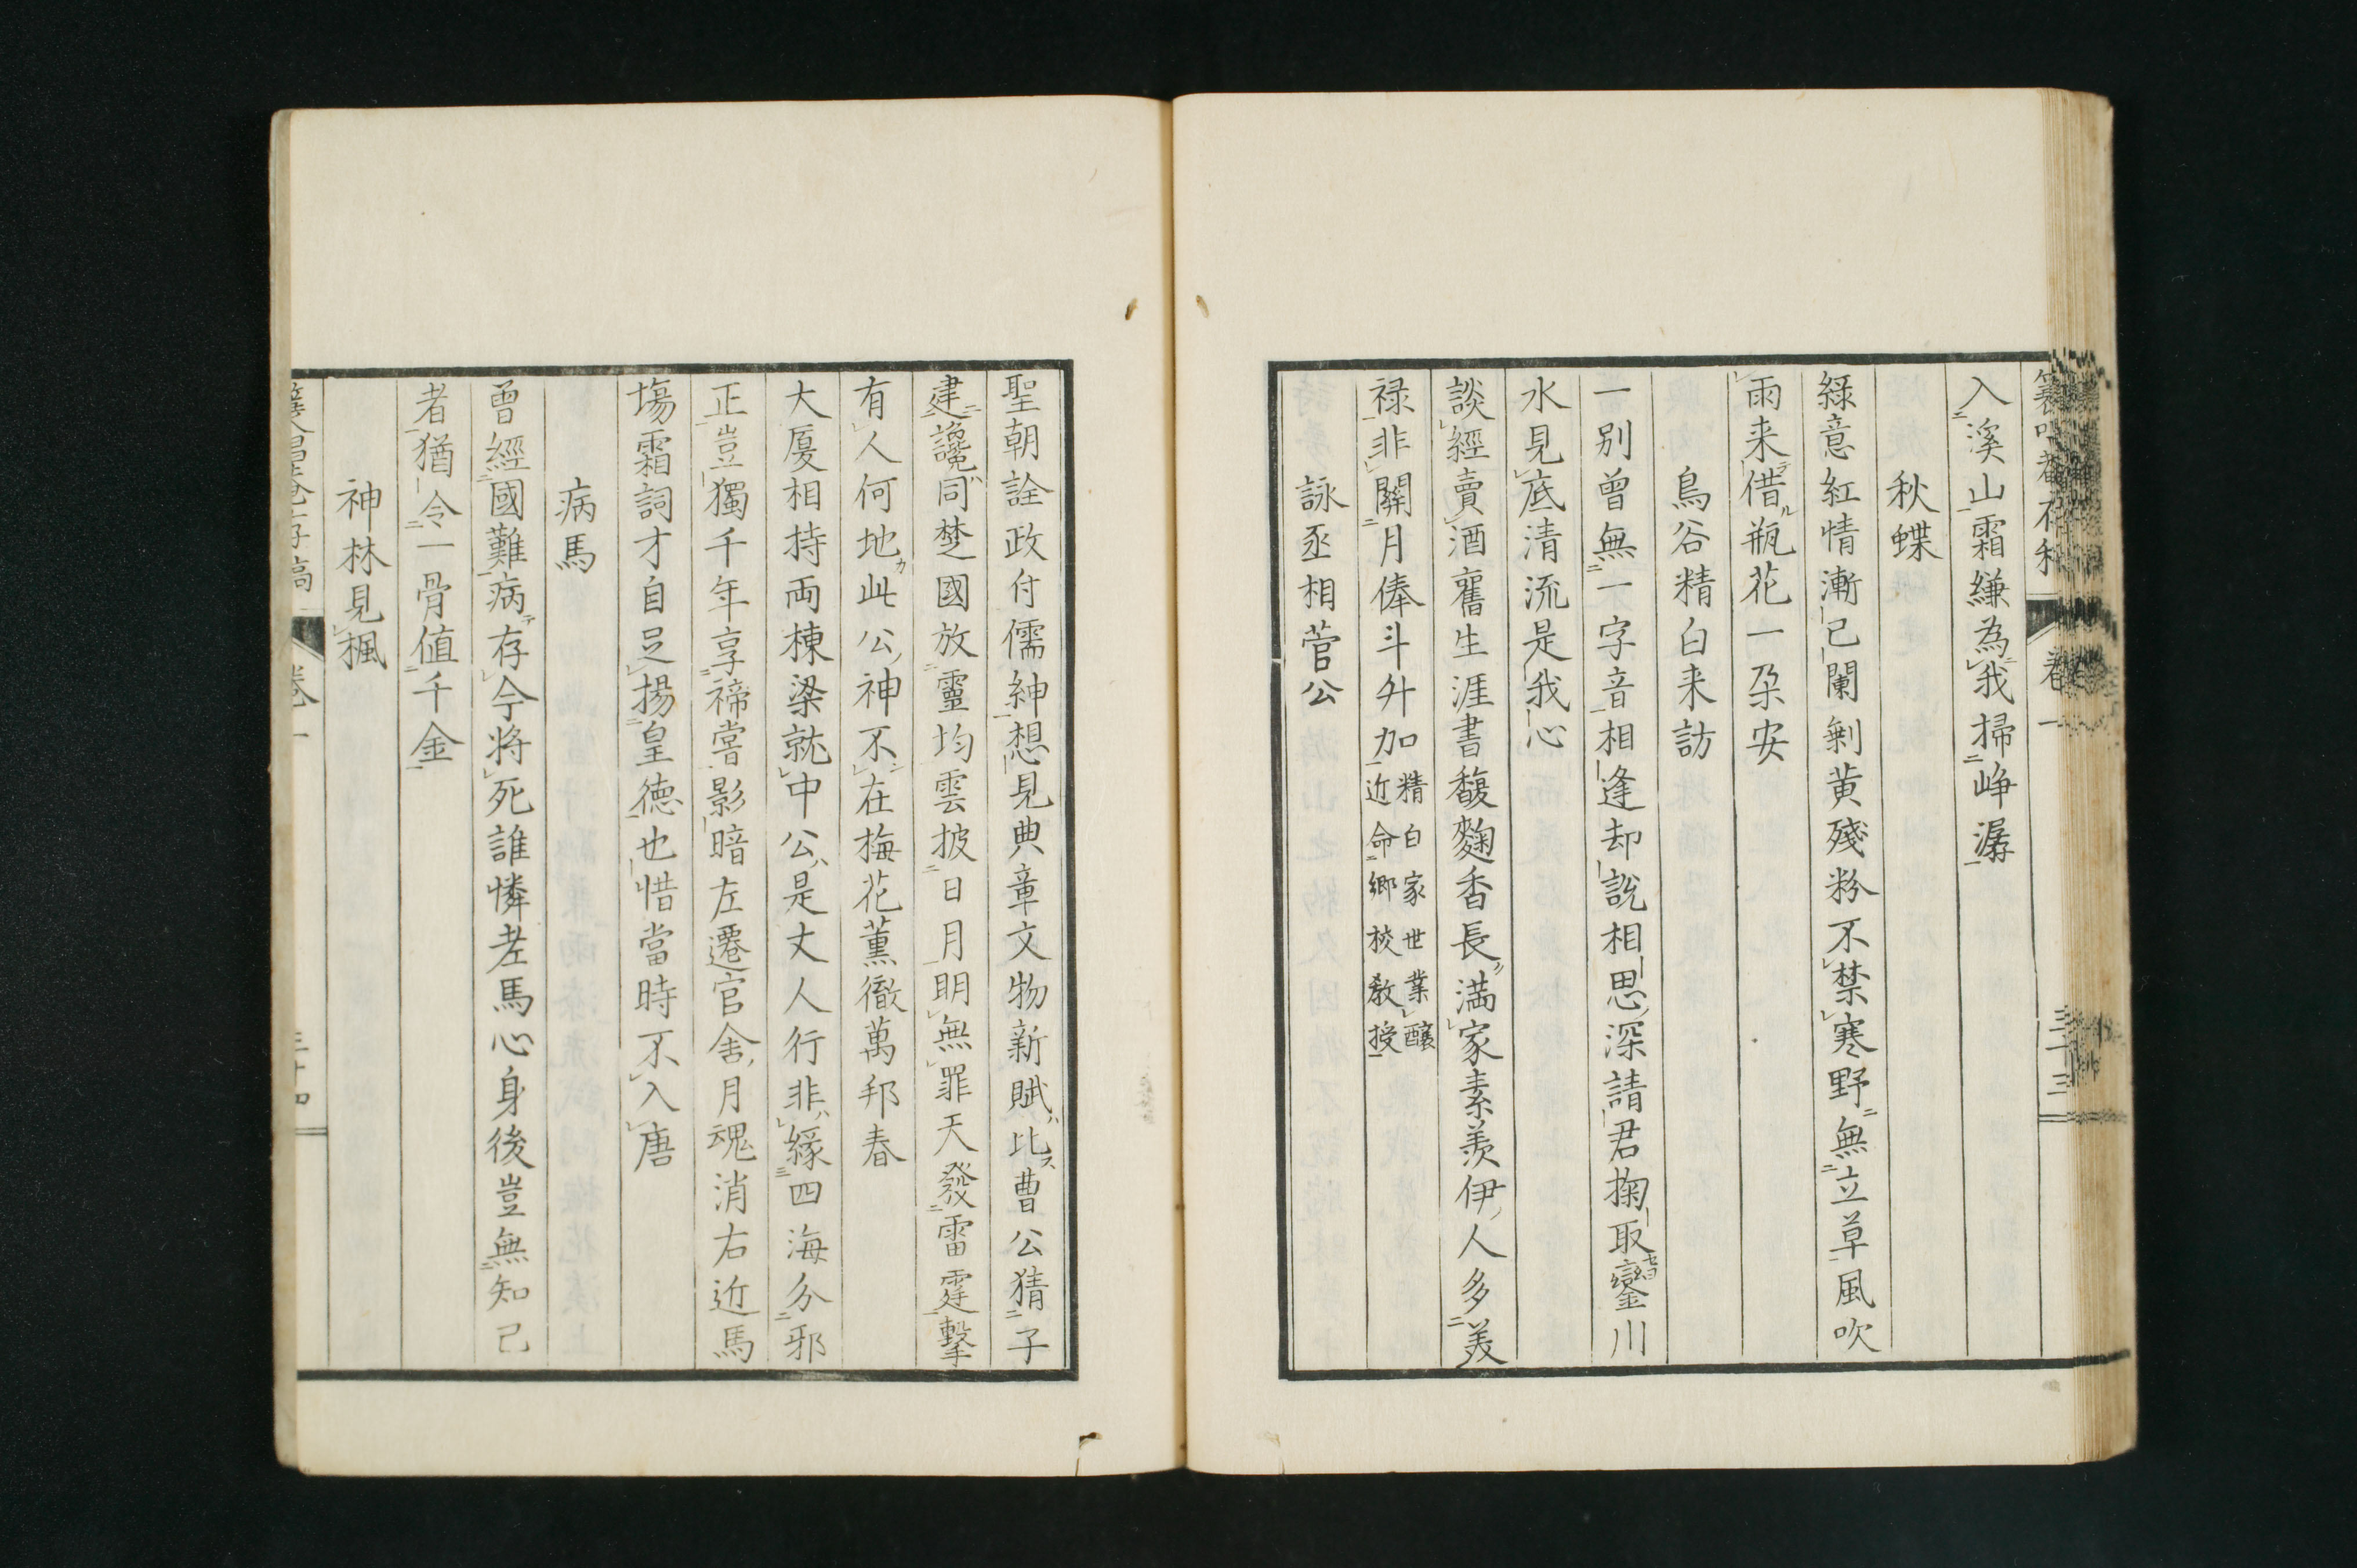 卷一
三十三
入溪山霜縑為我掃崢潺
秋蝶
緑意紅情漸已闌剰黄殘粉不禁寒野無立草風吹
雨来借瓶花一朶安
鳥谷精白来訪
一别曾無一字音相逢却説相思深請君掬取鑾川
水見底清流是我心
談經賣酒舊生涯書馥麴香長満家素羨伊人多美
禄非關月俸斗升加精白家世業醸
近命郷校教授
詠丞相菅公
聖朝詮政付儒紳想見典章文物新賦比曹公猜子
建讒同楚國放靈均雲披日月明無罪天發雷霆撃
有人何地此公神不在梅花薫徹萬邦春
大厦相持両棟梁就中公是丈人行非縁四海分邪
正豈獨千年享禘嘗影暗左遷官舎月魂消右近馬
塲霜詞才自足揚皇徳也惜當時不入唐
病馬
曾經國難病存今将死誰憐老馬心身後豈無知己
者猶令一骨値千金
神林見楓
卷一
三十四